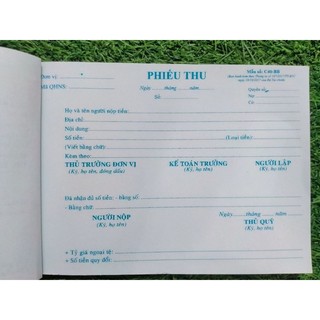 Đơn vị: PHIẾU THU Mẫu số: C40-BB
QHNS Ngày ......tháng ......năm......
Số Quyển số:
Nợ
Có
Họ và tên người nộp tiền:
Địa chỉ:
Nội dung:
Số tiền: (Loại tiền)
(Viết bằng chữ):
Kèm theo:
THỦ TRƯỞNG ĐƠN VỊ KẾ TOÁN TRƯỞNG NGƯỜI LẬP
(Ký, họ tên, đóng dấu) (Ký, họ tên) (Ký, họ tên)
Đã nhận đủ số tiền: - bằng số
- Bằng chữ:
Ngày......tháng ......năm
NGƯỜI NỘP THỦ QUỸ
(Ký, họ tên) (Ký, họ tên)
+ Tỷ giá ngoại tệ:
+ Số tiền quy đổi: